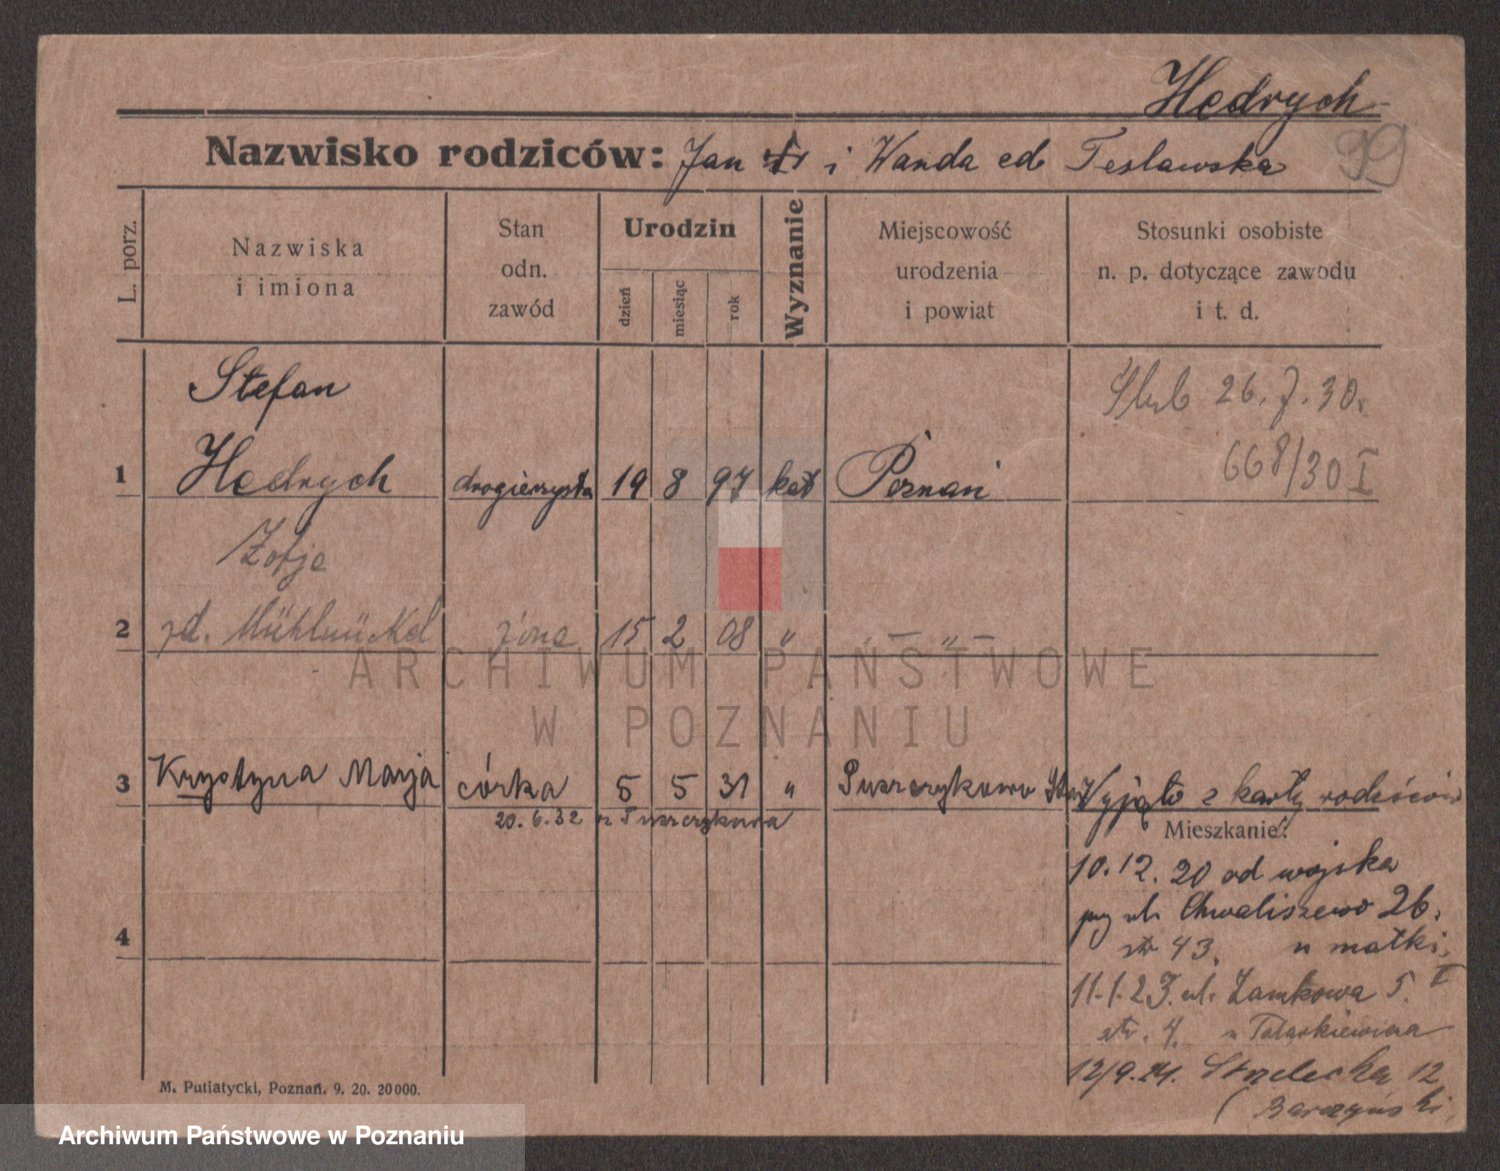 Hedrych
99
Nazwisko rodziców: Jan i Wanda Teslawska
L. porz.
Nazwiska
i imiona
Stan
odn.
zawód
Urodzin
dzień
miesiąc
rok
Wyznanie
Miejscowość
urodzenia
i powiat
Stosunki osobiste
n. p. dotyczące zawodu
i t. d.
Stefan
Ślub 26.7.30.
668/30 I
1 Hedrych drogierzysta 19 8 97 kat Poznań
Zofja
2 Mühlnückel żona 15 2 08 " – " –
3 Krystyna Marja córka 5 5 31 " Puszczykowo Wyjęto z karty rodziców
20.6.32 z Puszczykowa
Mieszkanie:
10.12.20 od wojska
przy ul. Chwaliszewo 26.
4
str 43. u matki
11.1.23. ul. Zamkowa 5. I
str. 4. u Tataskiewicza
12/9.24. Strzelecka 12
( Barczyński
M. Putiatycki, Poznań. 9. 20. 20000.
ARCHIWUM PAŃSTWOWE
W POZNANIU
Archiwum Państwowe w Poznaniu